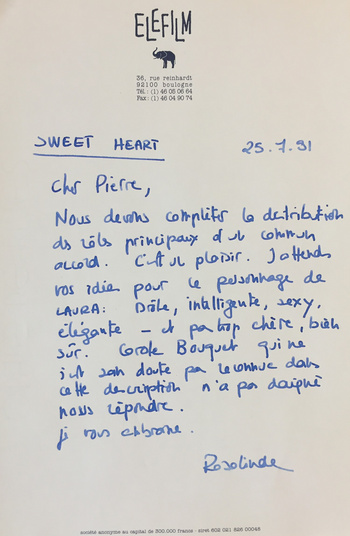 ELEFILM
36, rue reinhardt
92100 boulogne
Tél.: (1) 46 05 06 64
Fax: (1) 46 04 90 74
SWEET HEART
25.7.91
Cher Pierre,
Nous devons compléter la distribution
des rôles principaux d'un commun
accord. C'est un plaisir. J'attends
vos idées pour le personnage de
LAURA: Drôle, intelligente, sexy,
élégante - et pas trop chère, bien
sûr. Carole Bouquet qui ne
s'est sans doute pas reconnue dans
cette description n'a pas daigné
nous répondre.
je vous embrasse.
Rosalinde
société anonyme au capital de 300.000 francs - siret 602 021 626 00048